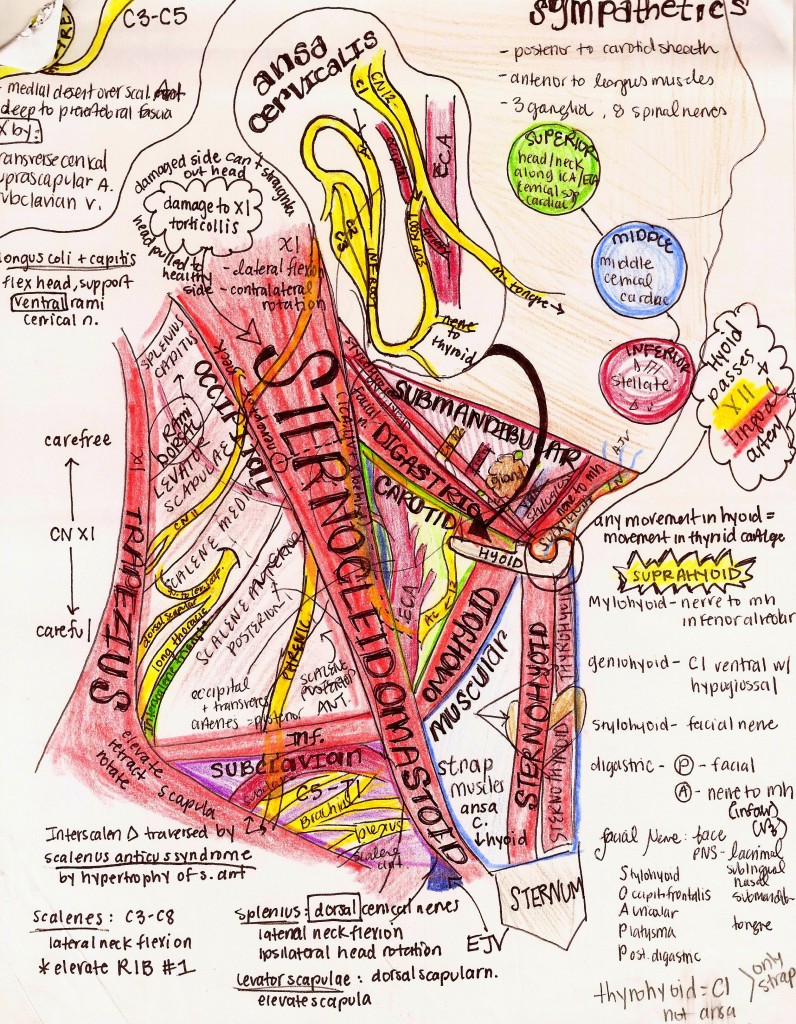 C3-C5
- medial desert over scal. Ant
deep to prevertebral fascia
X by:
transverse cervical
suprascapular A.
subclavian v.
longus coli + capitis
flex head, support
ventral rami
cervical n.
damaged side can't straighten
out head
damage to XI
torticollis
head pulled to
healthy
side
XI
- lateral flexion
- contralateral
rotation
ansa
cervicalis
C1
CN 12
C2
C3
ECA
nerve
to
thyroid
sympathetics
- posterior to carotid sheath
- anterior to longus muscles
- 3 ganglia, 8 spinal nerves
SUPERIOR
head/neck
along ICA/ECA
cervical sup
cardiac
MIDDLE
middle
cervical
cardiac
INFERIOR
stellate
Hyoid
passes
XII
lingual
artery
carefree
CN XI
careful
XI
TRAPEZIUS
elevate
retract
rotate
scapula
SPLENIUS
CAPITIS
RAMI
DORSAL
LEVATOR
SCAPULAE
OCCIPITAL
CN 11
SCALENE MEDIUS
dorsal scapular
long thoracic
SCALENE
POSTERIOR
PHRENIC
occipital
+ transverse
arteries = posterior
ANT.
STERNOCLEIDOMASTOID
Inf.
Subclavian
C5-T1
Brachial
plexus
scalene
ant
SUBMANDIBULAR
DIGASTRIC
facial
CAROTID
ECA
gland
nerve to mh
EJV
HYOID
OMOHYOID
MUSCULAR
STERNOHYOID
strap
muscles
ansa
C.
↓hyoid
STERNUM
EJV
any movement in hyoid =
movement in thyroid cartilage
SUPRAHYOID
Mylohyoid - nerve to mh
inferior alveolar
geniohyoid - C1 ventral w/
hypoglossal
stylohyoid - facial nerve
digastric - P - facial
A - nerve to mh
(infalv)
(V3)
facial nerve: face
PNS - lacrimal
sublingual
nasal
submandib
tongue
Stylohyoid
Occipitfrontalis
Auricular
Platysma
Post. digastric
thyrohyoid = C1
not ansa
only
strap
Interscalen Δ traversed by
scalenus anticus syndrome
by hypertrophy of s. ant
scalenes: C3-C8
lateral neck flexion
* elevate RIB #1
splenius: dorsal cervical nerves
lateral neck flexion
ipsilateral head rotation
levator scapulae: dorsal scapular n.
elevate scapula